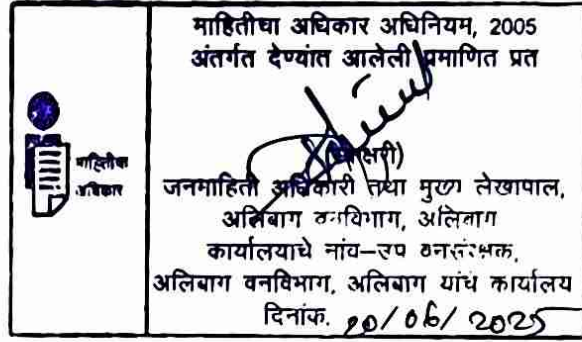 माहितीचा अधिकार अधिनियम, 2005
अंतर्गत देण्यांत आलेली प्रमाणित प्रत
माहितीचा
अधिकार
जनमाहिती अधिकारी तथा मुख्य लेखापाल,
अलिबाग वनविभाग, अलिबाग
कार्यालयाचे नांव–उप वनसंरक्षक,
अलिबाग वनविभाग, अलिबाग यांचे कार्यालय
दिनांक. 10/06/2025